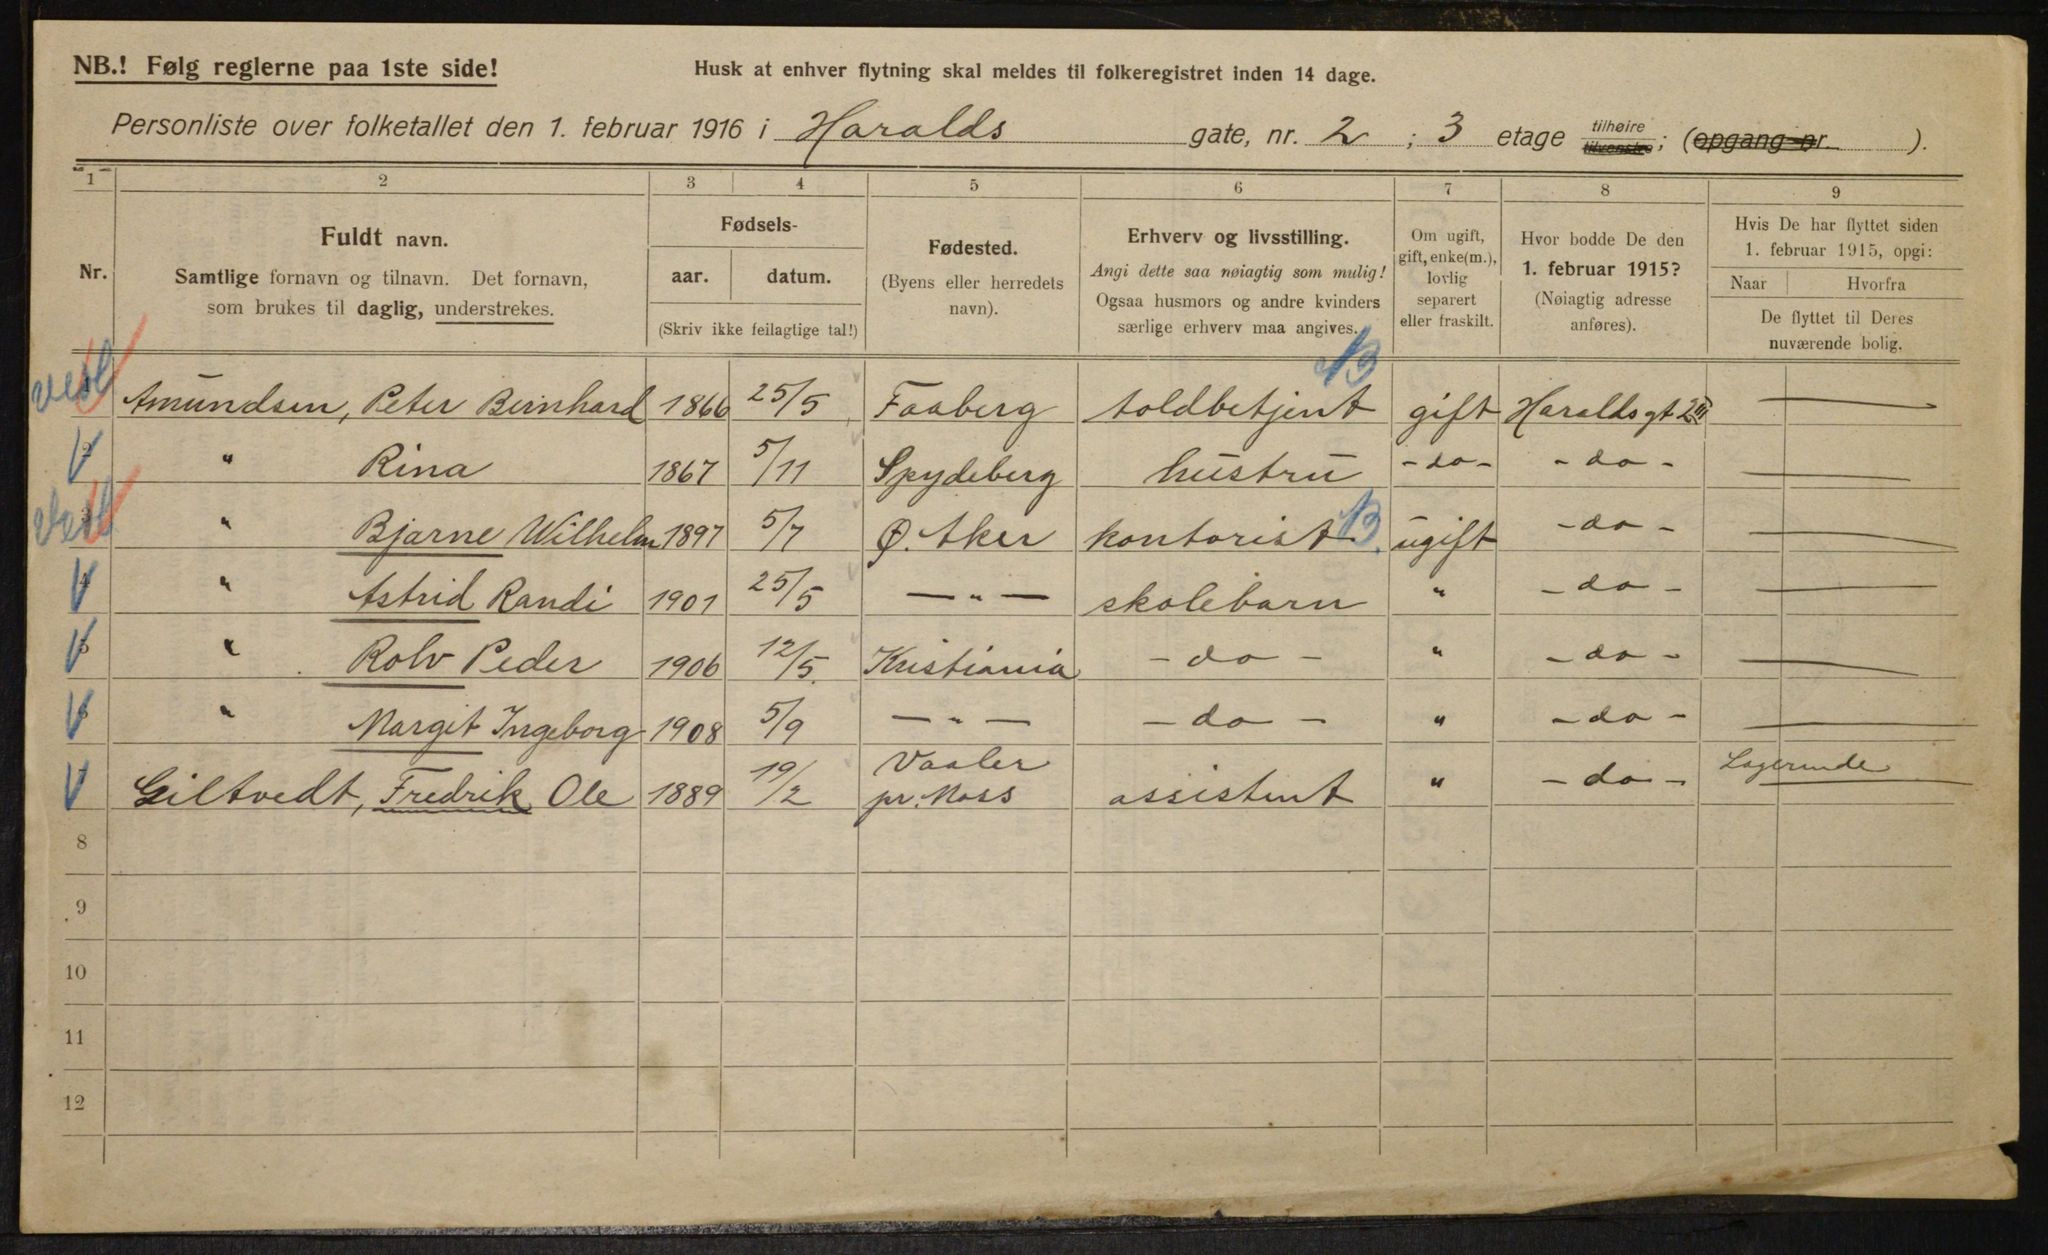 NB.! Følg reglerne paa 1ste side!
Husk at enhver flytning skal meldes til folkeregistret inden 14 dage.
Personliste over folketallet den 1. februar 1916 i Haralds gate, nr. 2 ; 3 etage tilhøire tilvenstre; (opgang nr. ).
1 2 3 4 5 6 7 8 9
Nr.
Fuldt navn.
Samtlige fornavn og tilnavn. Det fornavn,
som brukes til daglig, understrekes.
Fødsels-
aar. datum.
(Skriv ikke feilagtige tal!)
Fødested.
(Byens eller herredels
navn).
Erhverv og livsstilling.
Angi dette saa nøiagtig som mulig!
Ogsaa husmors og andre kvinders
særlige erhverv maa angives.
Om ugift,
gift, enke(m.),
lovlig
separert
eller fraskilt.
Hvor bodde De den
1. februar 1915?
(Nøiagtig adresse
anføres).
Hvis De har flyttet siden
1. februar 1915, opgi:
Naar Hvorfra
De flyttet til Deres
nuværende bolig.
Amundsen, Peter Bernhard 1866 25/5 Faaberg toldbetjent gift Haraldsgt 2 III —
2 " Rina 1867 5/11 Spydeberg hustru - do - - do - —
3 " Bjarne Wilhelm 1897 5/7 Ø. Aker kontorist. ugift - do - —
4 " Astrid Randi 1901 25/5 — " — skolebarn " - do - —
5 " Rolv Peder 1906 12/5. Kristiania - do - " - do - —
6 " Margit Ingeborg 1908 5/9 — " — - do - " - do - —
7 Giltvedt, Fredrik Ole 1889 19/2 Vaaler pr. Moss assistent " - do - Logerende
8
9
10
11
12